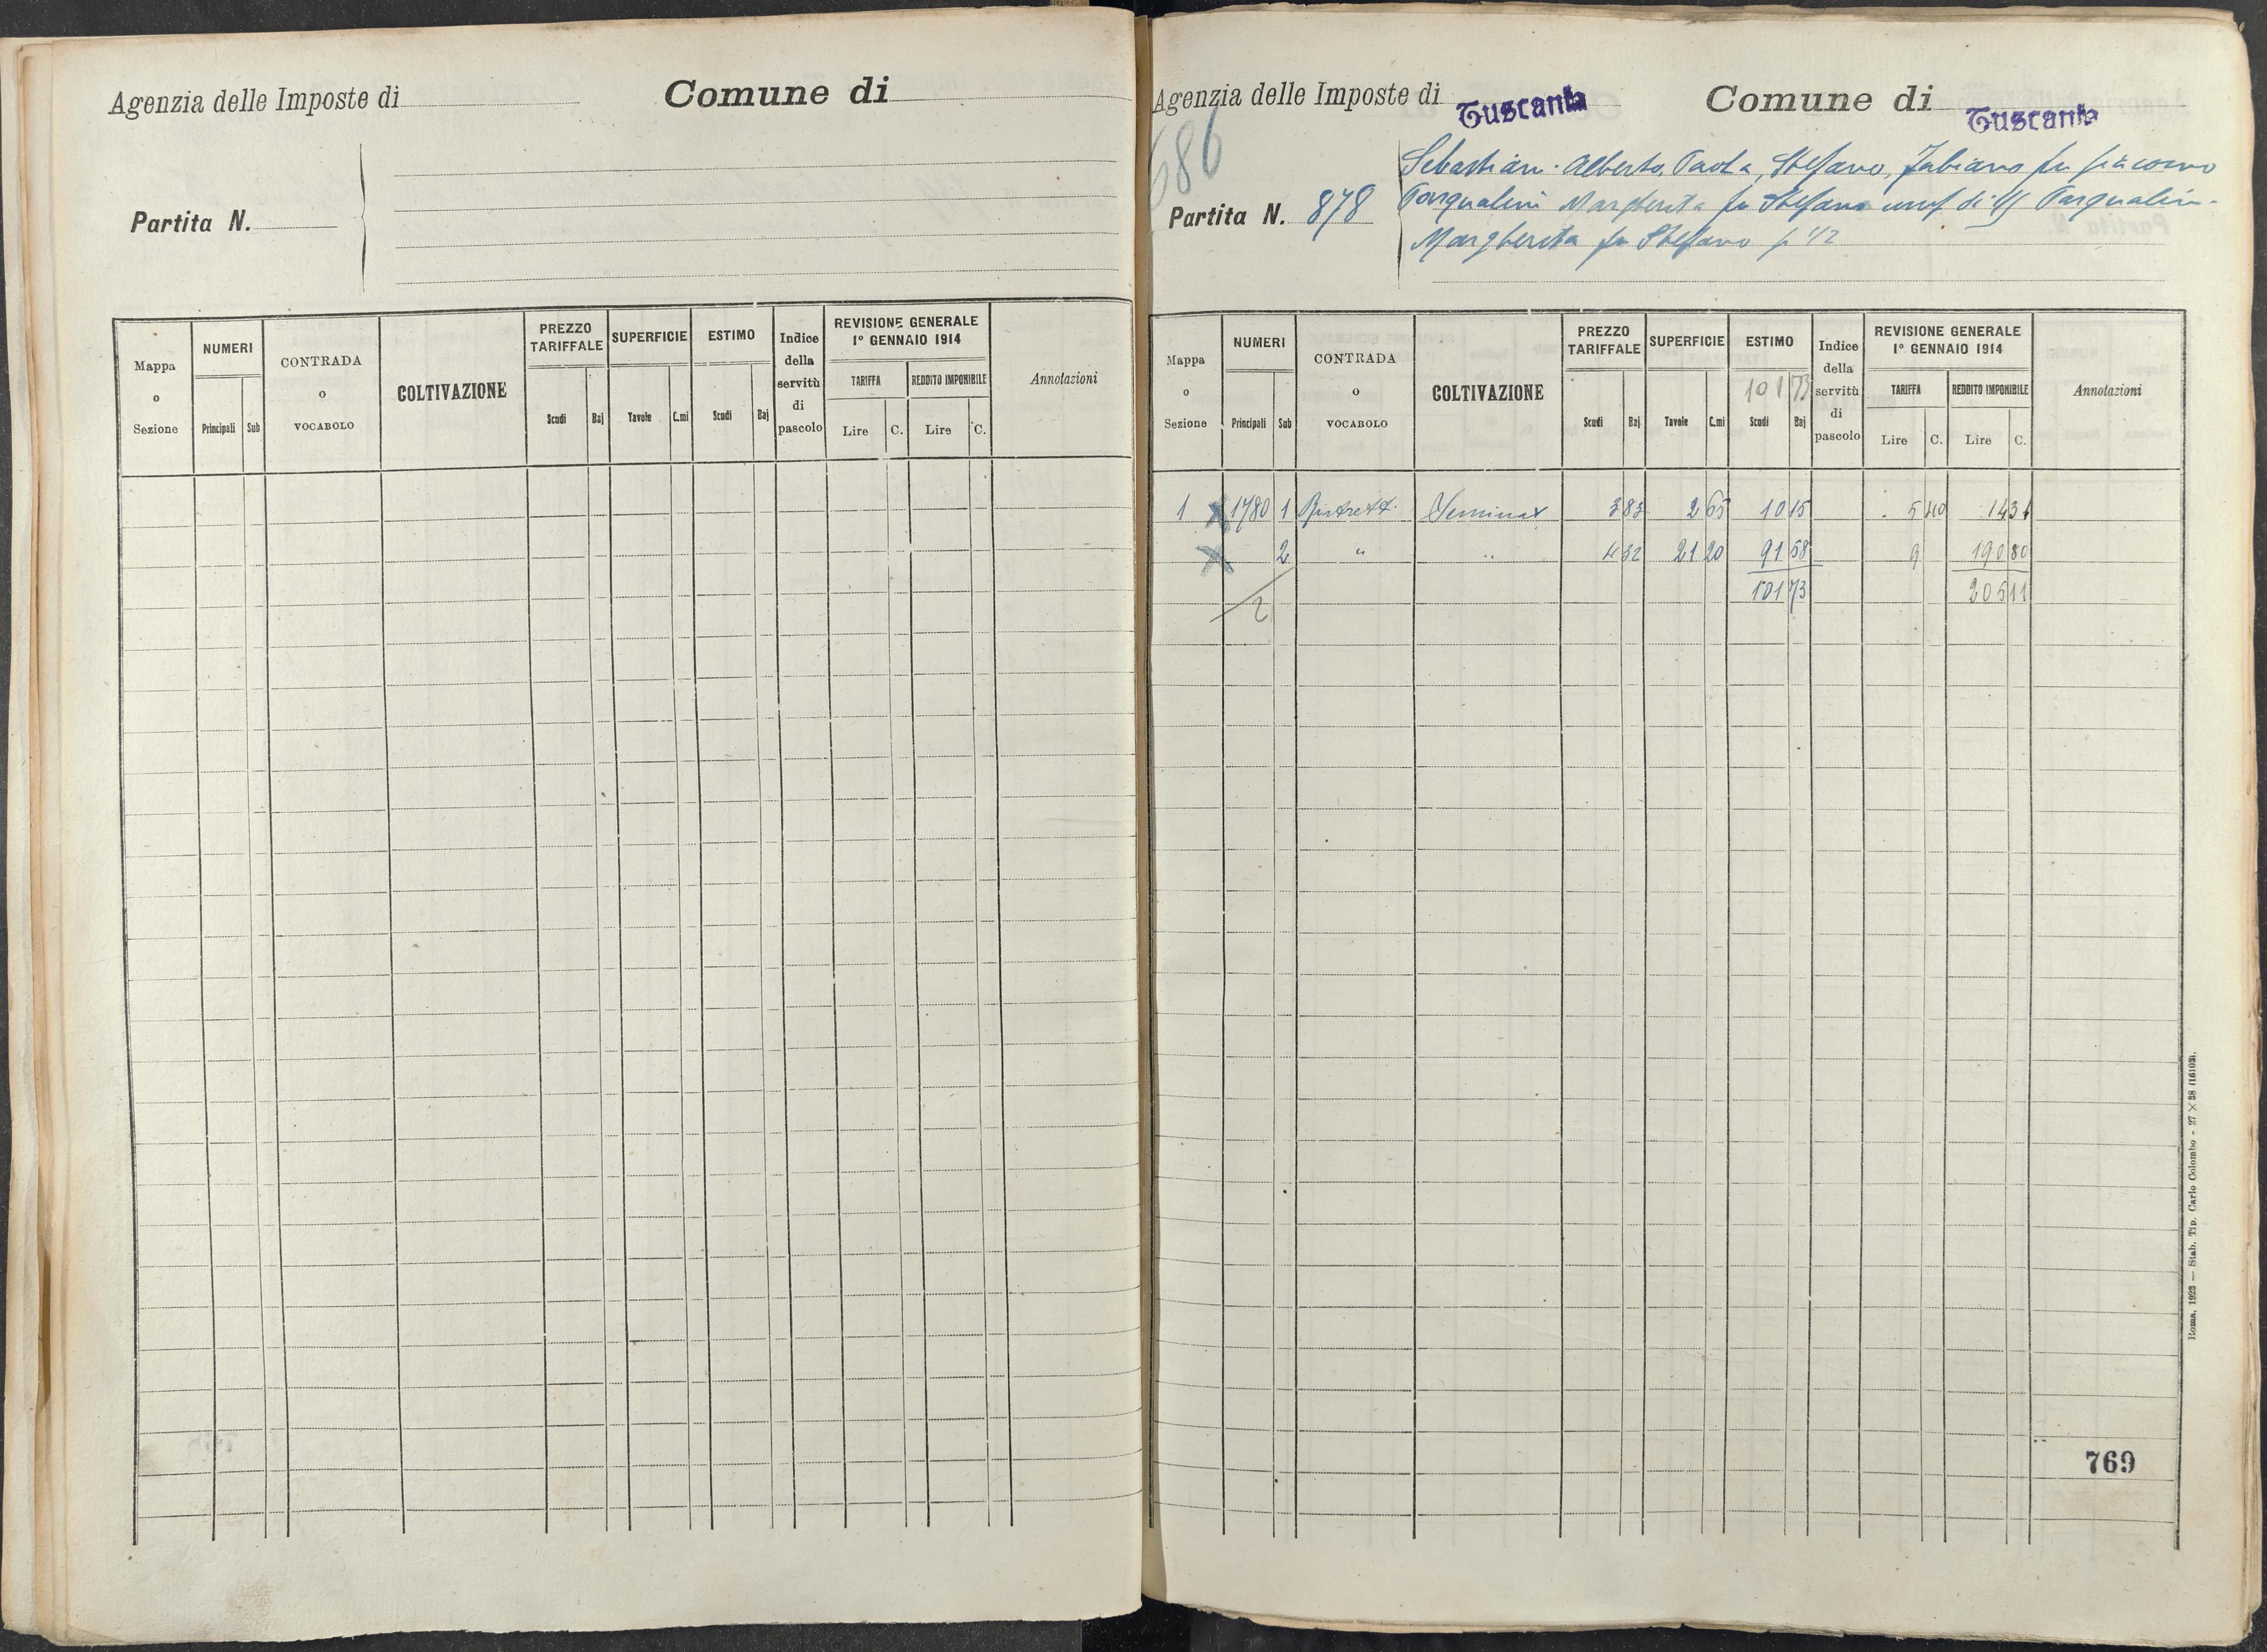 Agenzia delle Imposte di
Comune di
Partita N.
Mappa o Sezione
NUMERI
Principali Sub
CONTRADA o VOCABOLO
COLTIVAZIONE
PREZZO TARIFFALE
Scudi Baj
SUPERFICIE
Tavole C.mi
ESTIMO
Scudi Baj
Indice della servitù di pascolo
REVISIONE GENERALE
1° GENNAIO 1914
TARIFFA
Lire C.
REDDITO IMPONIBILE
Lire C.
Annotazioni
Agenzia delle Imposte di Tuscania
Comune di Tuscania
686
Partita N. 878
Sebastiani Alberto, Paola, Stefano, Fabiano fu Giacomo
Pasqualini Margherita fu Stefano usuf di Pasqualini
Margherita fu Stefano p 1/2
Mappa o Sezione
NUMERI
Principali Sub
CONTRADA o VOCABOLO
COLTIVAZIONE
PREZZO TARIFFALE
Scudi Baj
SUPERFICIE
Tavole C.mi
ESTIMO
101 73
Scudi Baj
Indice della servitù di pascolo
REVISIONE GENERALE
1° GENNAIO 1914
TARIFFA
Lire C.
REDDITO IMPONIBILE
Lire C.
Annotazioni
1 X 1780 1 Seminat 3 83 2 65 10 15 5 40 14 31
X 2 " " 4 32 21 20 91 58 9 190 80
2 101 73 205 11
Roma, 1923 — Stab. Tip. Carlo Colombo - 27 × 38 (16103).
769